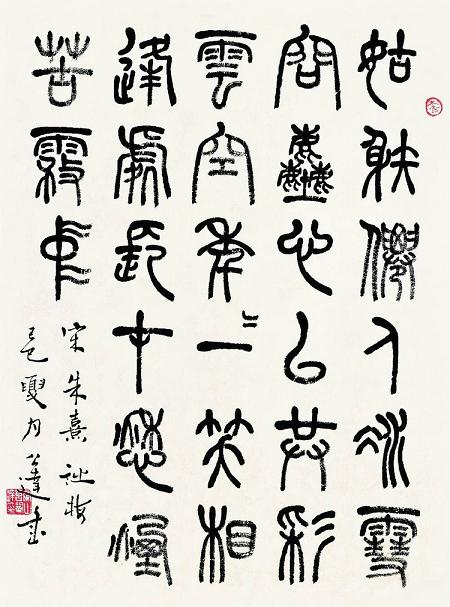 姑射僊人冰雪
容塵心已共彩
雲空年〻一笑相
逢處長在愁煙
苦霧中
宋朱熹詠梅
夏月公達書